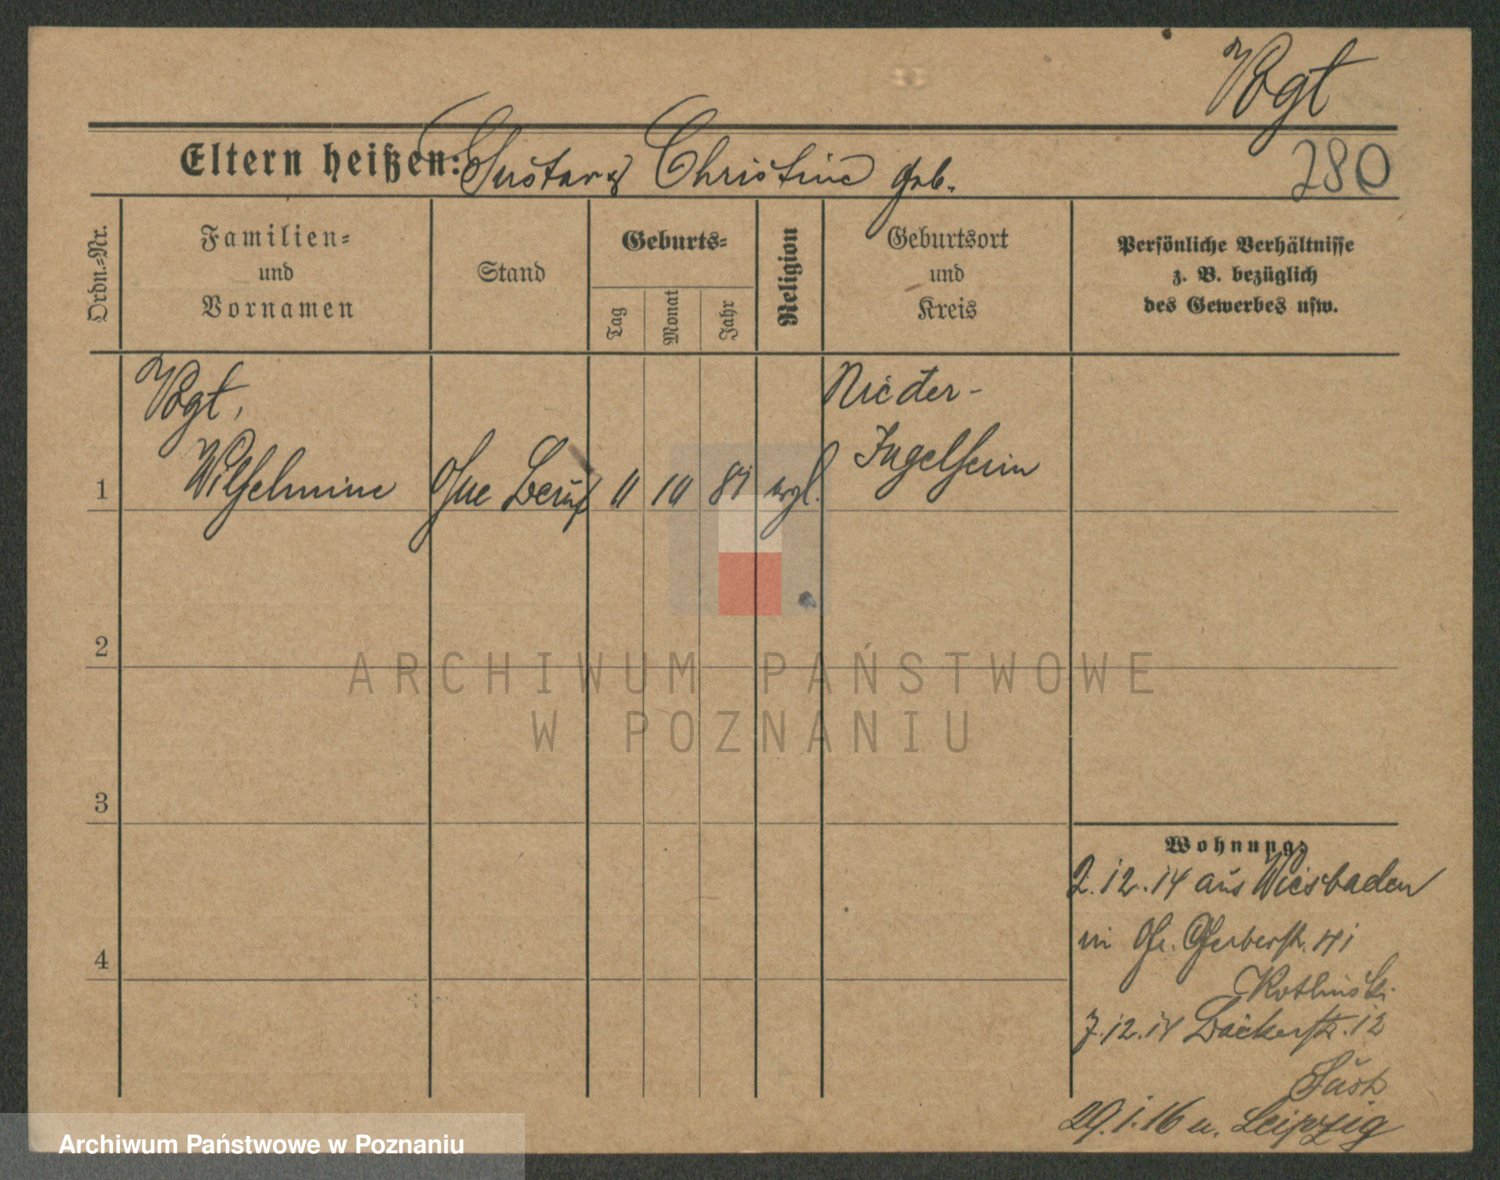 Vogt
280
Eltern heißen: Gustav & Christine geb.
Ordn.=Nr.
Familien=
und
Vornamen
Stand
Geburts=
Tag
Monat
Jahr
Religion
Geburtsort
und
Kreis
Persönliche Verhältnisse
z. B. bezüglich
des Gewerbes usw.
Vogt,
Wilhelmine
ohne Beruf
11
10
81
evgl.
Nieder-
Ingelheim
1
2
3
4
Wohnung:
2.12.14 aus Wiesbaden
in Gr. Gerberstr. 41
Kotlinski
7.12.14 Bäckerstr. 12
29.1.16 n. Leipzig
ARCHIWUM PAŃSTWOWE
W POZNANIU
Archiwum Państwowe w Poznaniu